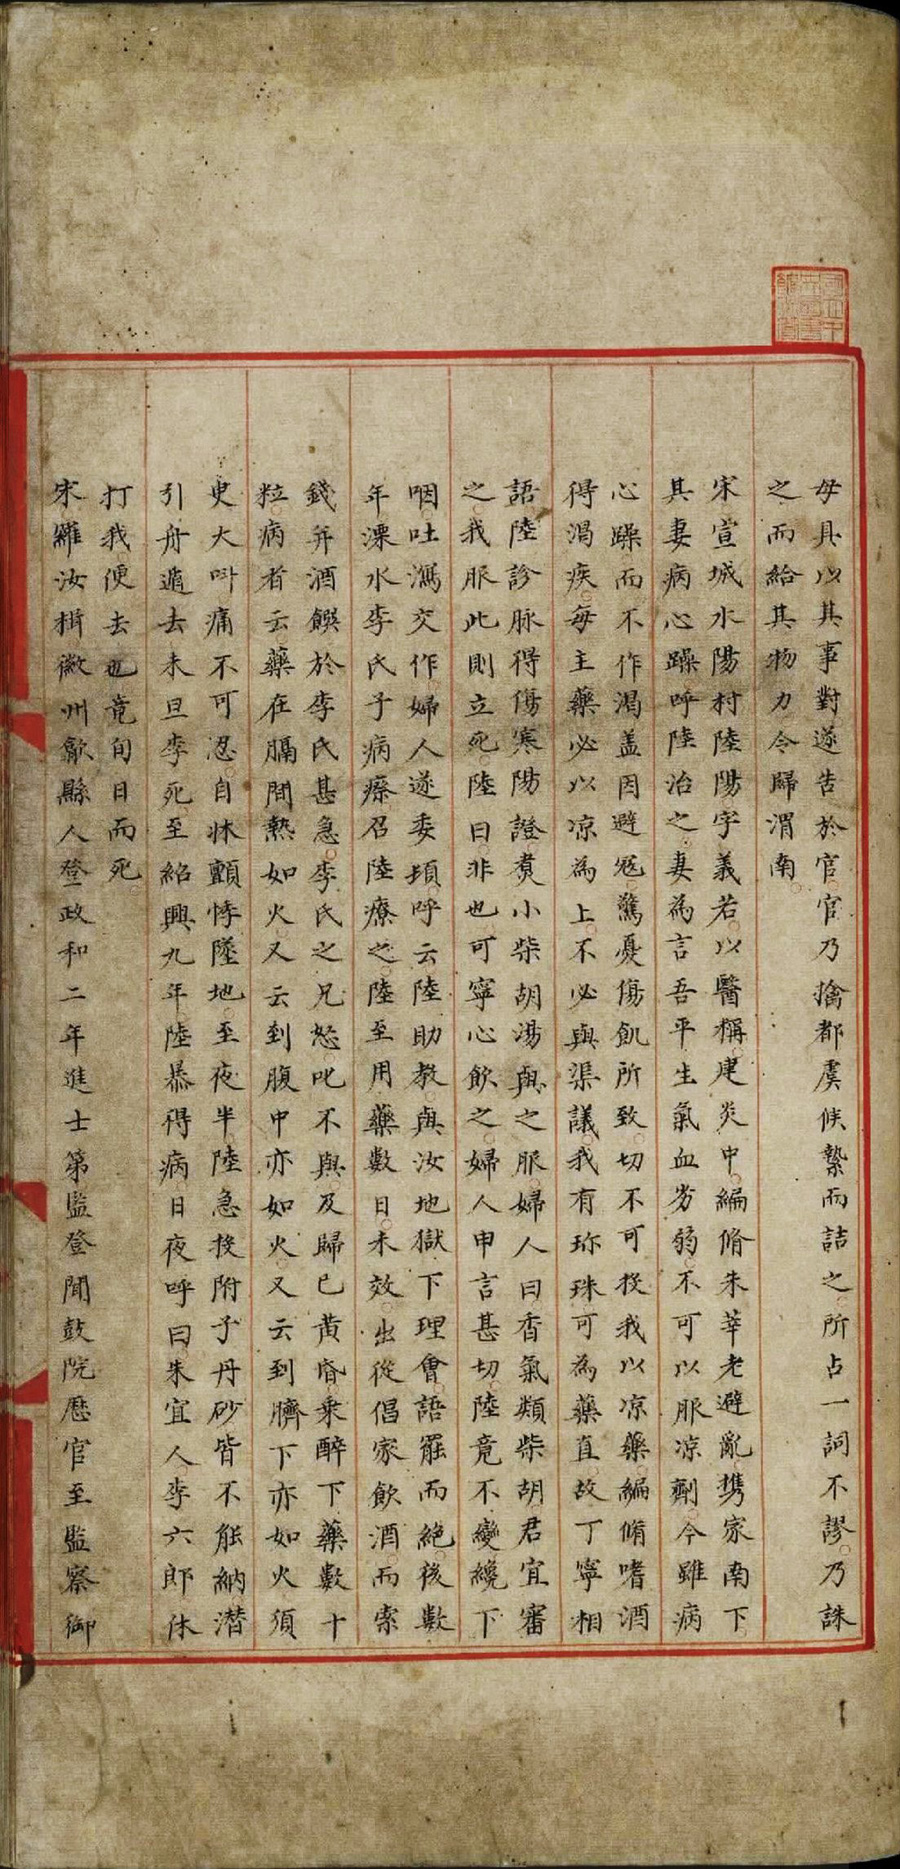 母具以其事對遂告於官官乃擒都虞候縶而詰之所占一詞不謬乃誅
之而給其物力令歸渭南
宋宣城水陽村陸陽字義若以醫稱建炎中編脩朱莘老避亂携家南下
其妻病心躁呼陸治之妻為言吾平生氣血劣弱不可以服凉劑今雖病
心躁而不作渴盖因避冦驚憂傷飢所致切不可投我以凉藥編脩嗜酒
得渴疾每主藥必以凉為上不必與渠議我有珎珠可為藥直故丁寧相
語陸診脉得傷寒陽證煑小柴胡湯與之服婦人曰香氣類柴胡君宜審
之我服此則立死陸曰非也可寧心飲之婦人申言甚切陸竟不變纔下
咽吐瀉交作婦人遂委頓呼云陸助教與汝地獄下理會語罷而絶後數
年溧水李氏子病瘵召陸療之陸至用藥數日未效出從倡家飲酒而索
錢并酒饌於李氏甚急李氏之兄怒叱不與及歸已黃昏乗醉下藥數十
粒病者云藥在膈間熱如火又云到腹中亦如火又云到臍下亦如火須
臾大呌痛不可忍自牀顫悸墜地至夜半陸急投附子丹砂皆不能納潜
引舟遁去未旦李死至紹興九年陸暴得病日夜呼曰朱宜人李六郎休
打我便去也竟旬日而死
宋羅汝楫徽州歙縣人登政和二年進士第監登聞鼓院歴官至監察御